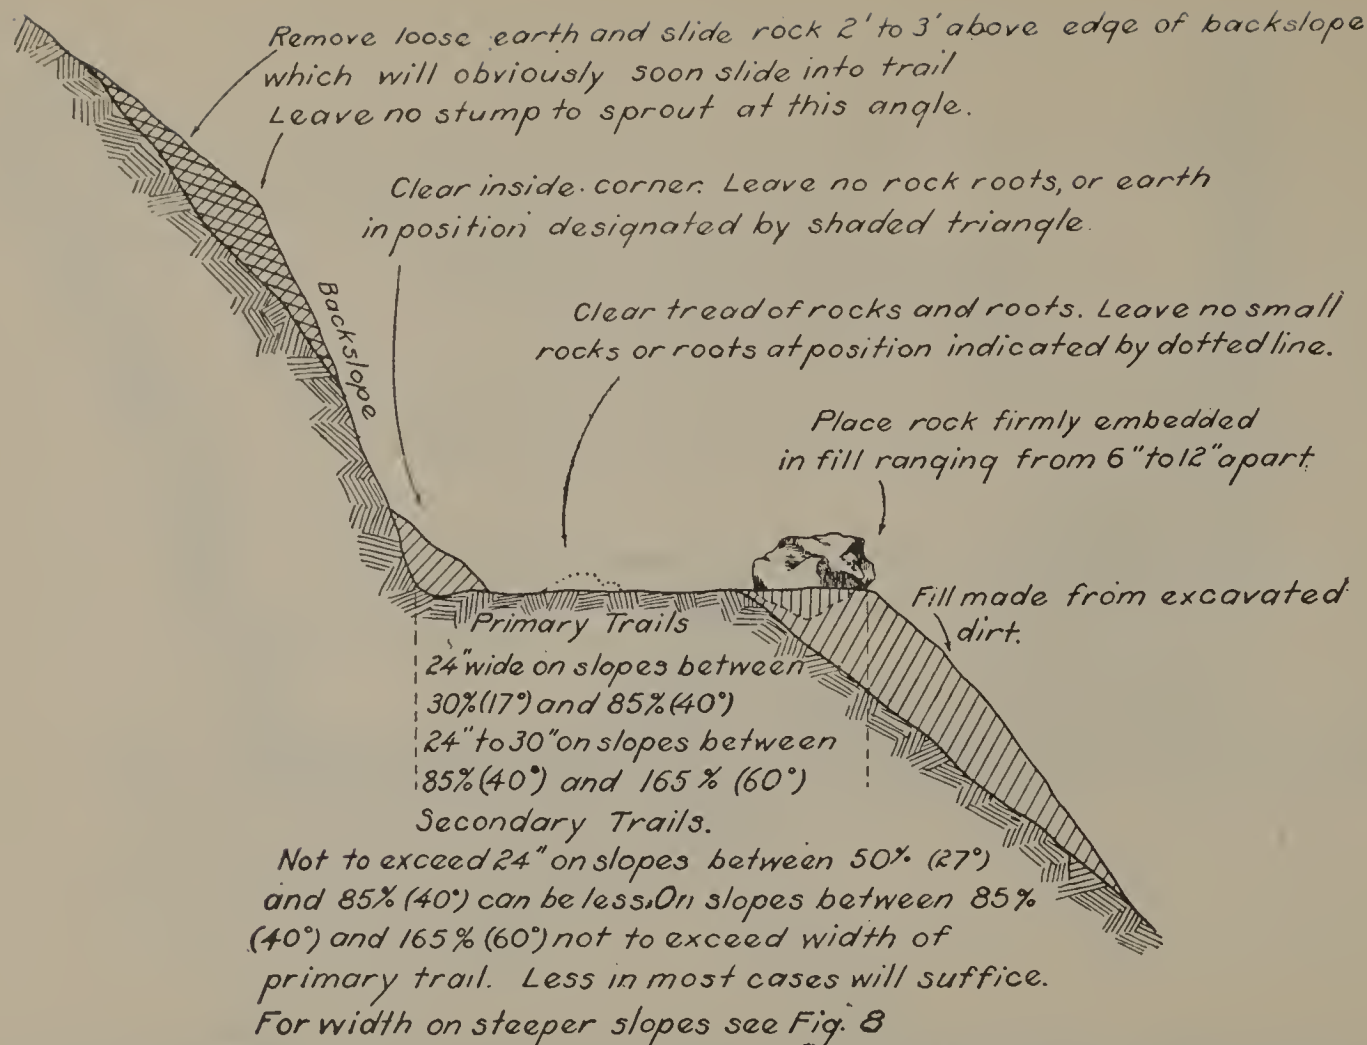 Remove loose earth and slide rock 2' to 3' above edge of backslope
which will obviously soon slide into trail
Leave no stump to sprout at this angle.
Clear inside corner. Leave no rock roots, or earth
in position designated by shaded triangle.
Backslope
Clear tread of rocks and roots. Leave no small
rocks or roots at position indicated by dotted line.
Place rock firmly embedded
in fill ranging from 6" to 12" apart
Fill made from excavated
dirt.
Primary Trails
24" wide on slopes between
30% (17°) and 85% (40°)
24" to 30" on slopes between
85% (40°) and 165% (60°)
Secondary Trails.
Not to exceed 24" on slopes between 50% (27°)
and 85% (40°) can be less. On slopes between 85%
(40°) and 165% (60°) not to exceed width of
primary trail. Less in most cases will suffice.
For width on steeper slopes see Fig. 8